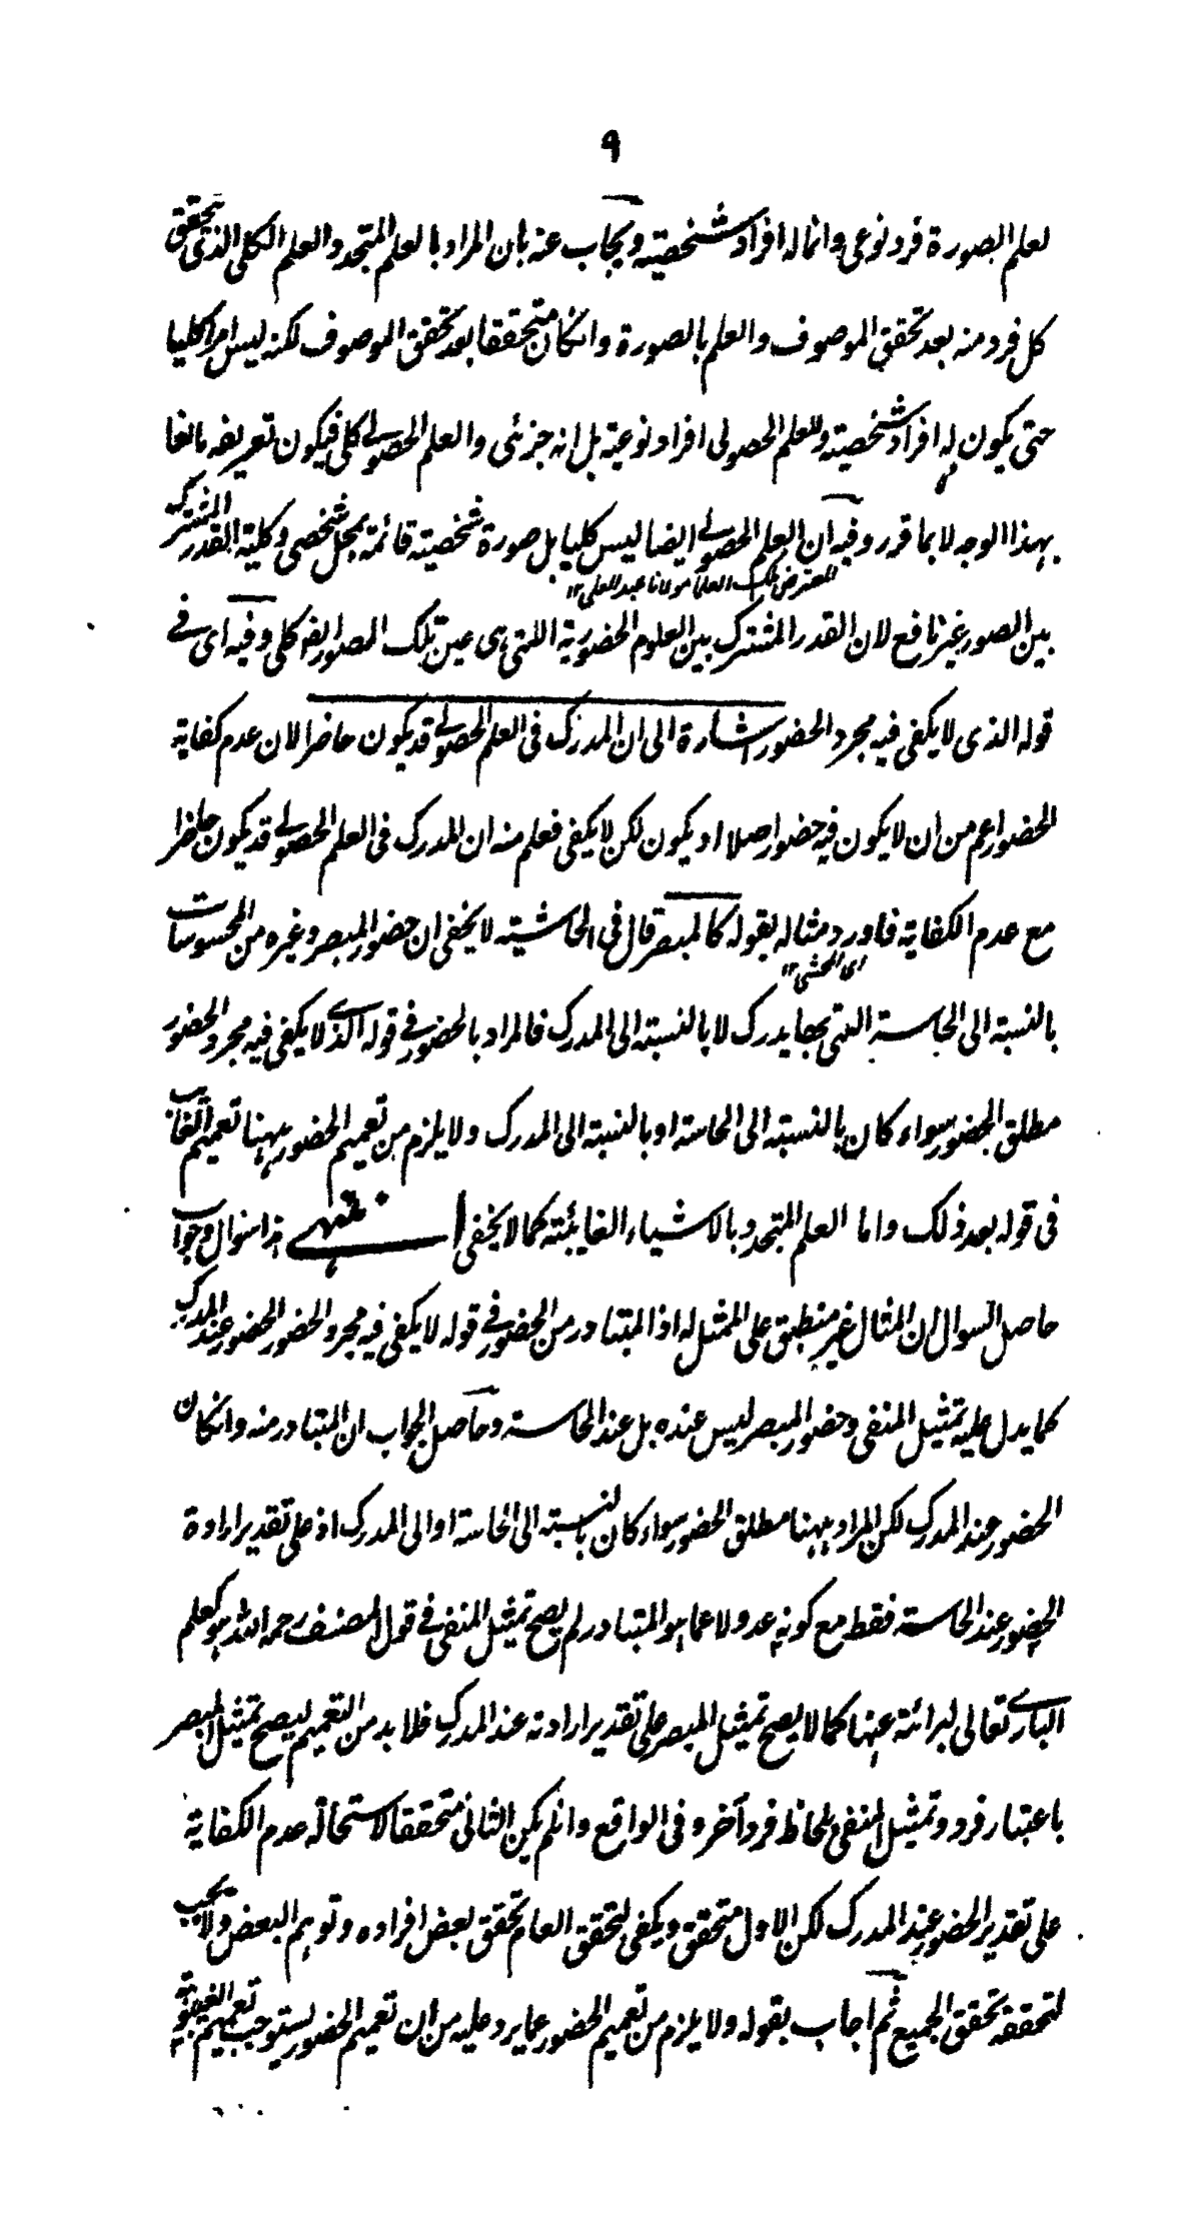 ٩
لعلم الصورة فرد نوعى وانما له افراد شخصية ويجاب عنه بان المراد بالعلم المتجدد العلم الكلى الذى تحقق
كل فرد منه بعد تحقق الموصوف والعلم بالصورة وانكان متحققا بعد تحقق الموصوف لكنه ليس امرا كليا
حتى يكون له افراد شخصية وللعلم الحصولى افراد نوعية بل انه جزئى والعلم الحصولے كلى فيكون تعريفه مانعا
بهذا الوجه لا بما قرر وفيه ان العلم الحصولے ايضا ليس كليا بل صورة شخصية قائمة بمحل شخصى وكلية القدر المشترك
المعترض ملك العلما مولانا عبد العلى ١٢
بين الصور غير نافع لان القدر المشترك بين العلوم الحضورية اللتى هى عين تلك الصور ايضا كلى وفيه اى فے
قوله الذى لا يكفى فيه مجرد الحضور اشارة الى ان المدرك فى العلم الحصولے قد يكون حاضرا لان عدم كفاية
الحضور اعم من ان لا يكون فيه حضور اصلا او يكون لكن لا يكفى فعلم منه ان المدرك فى العلم الحصولے قد يكون حاضرا
مع عدم الكفاية فاورد مثاله بقوله كالمبصر قال فى الحاشية لا يخفى ان حضور المبصر وغيره من المحسوسات
اى المحشى ١٢
بالنسبة الى الحاسة التى بها يدرك لا بالنسبة الى المدرك فالمراد بالحضور فے قوله الذے لا يكفى فيه مجرد الحضور
مطلق الحضور سواء كان بالنسبة الى الحاسة او بالنسبة الى المدرك ولا يلزم من تعميم الحضور ههنا تعميم الغائب
فى قوله بعد ذلك واما العلم المتجدد بالاشياء الغائبة كما لا يخفى انتهے هذا سوال وجواب
حاصل السوال ان المثال غير منطبق على الممثل له اذ المتبادر من الحضور فے قوله لا يكفى فيه مجرد الحضور الحضور عند المدرك
كما يدل عليه تمثيل المنفى وحضور المبصر ليس عنده بل عند الحاسة وحاصل الجواب ان المتبادر منه وانكان
الحضور عند المدرك لكن المراد ههنا مطلق الحضور سواء كان بالنسبة الى الحاسة او الى المدرك اذ على تقدير ارادة
الحضور عند الحاسة فقط مع كونه عدولا عما هو المتبادر لم يصح تمثيل المنفى فے قول المصنف رحمه الله هو كعلم
البارے تعالى لبرائته عنها كما لا يصح تمثيل المبصر على تقدير ارادته عند المدرك فلا بد من التعميم ليصح تمثيل المبصر
باعتبار فرد وتمثيل المنفى بلحاظ فرد آخر وفى الواقع وانلم يكن الثانى متحققا لاستحالة عدم الكفاية
على تقدير الحضور عند المدرك لكن الاول متحقق ويكفى لتحقق العام تحقق بعض افراده وتوهم البعض ولا يجب
لتحققه تحقق الجميع ثم اجاب بقوله ولا يلزم من تعميم الحضور عما يرد عليه من ان تعميم الحضور يستوجب تعميم الغيبوبة